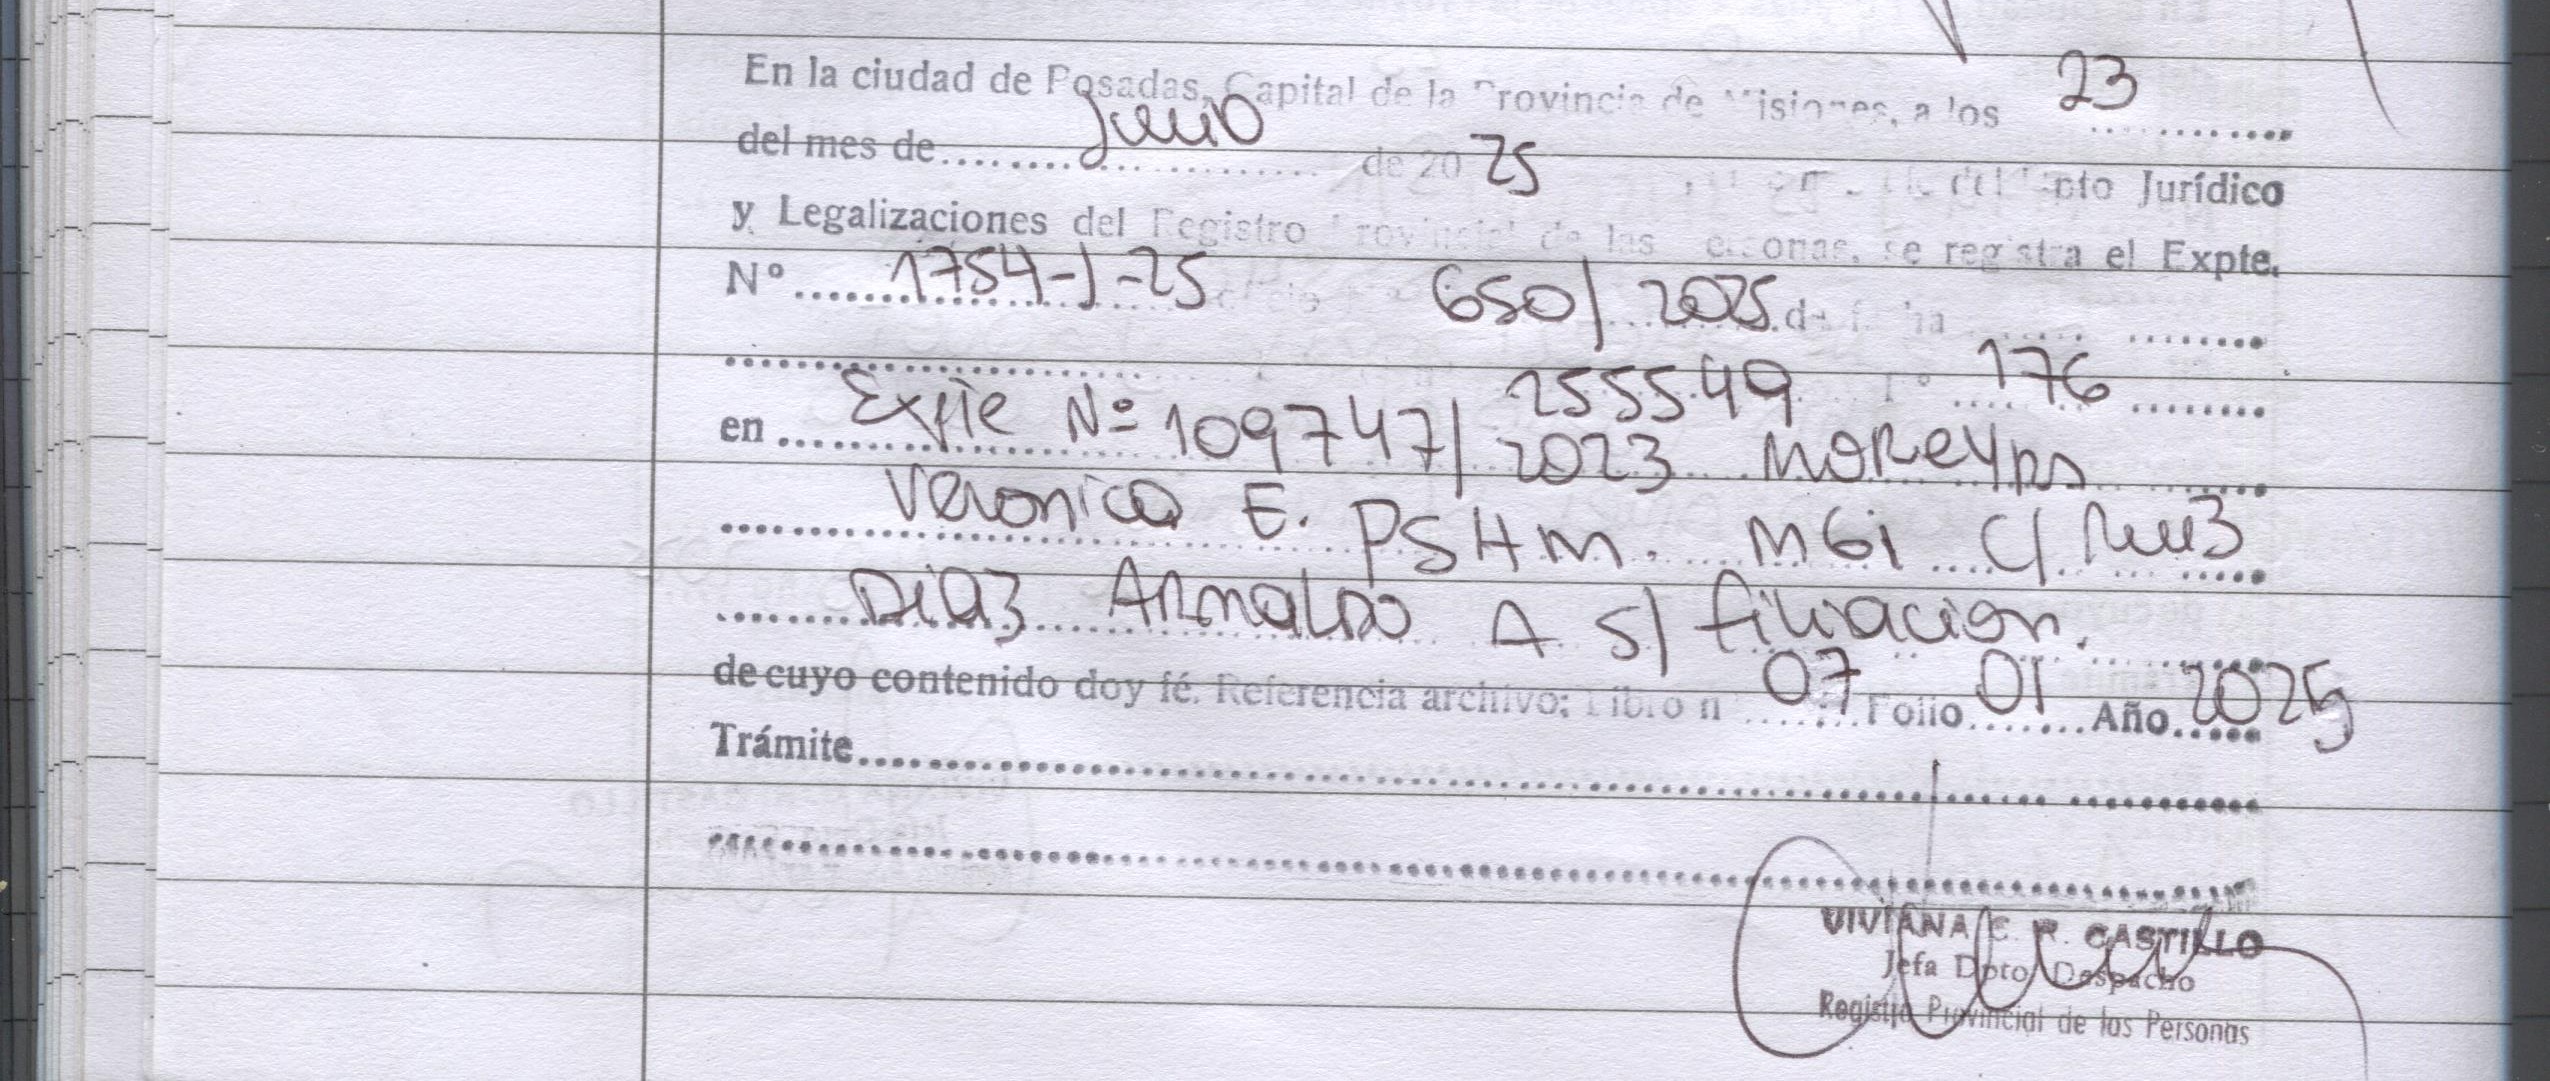 En la ciudad de Posadas, Capital de la Provincia de Misiones, a los 23
del mes de Junio de 2025 del Dpto Jurídico
y Legalizaciones del Registro Provincial de las Personas, se registra el Expte.
Nº 1754-J-25 650/2025 de fecha
255549 Fº 176
en Expte Nº 109747/2023 MOReyra
Veronica E. PSHm. MGi C/ Ruiz
Diaz Arnaldo A S/ filiacion.
de cuyo contenido doy fé. Referencia archivo: Libro n 07 Folio 01 Año 2025
Trámite
VIVIANA C. R. CASTILLO
Jefa Dpto Despacho
Registro Provincial de las Personas